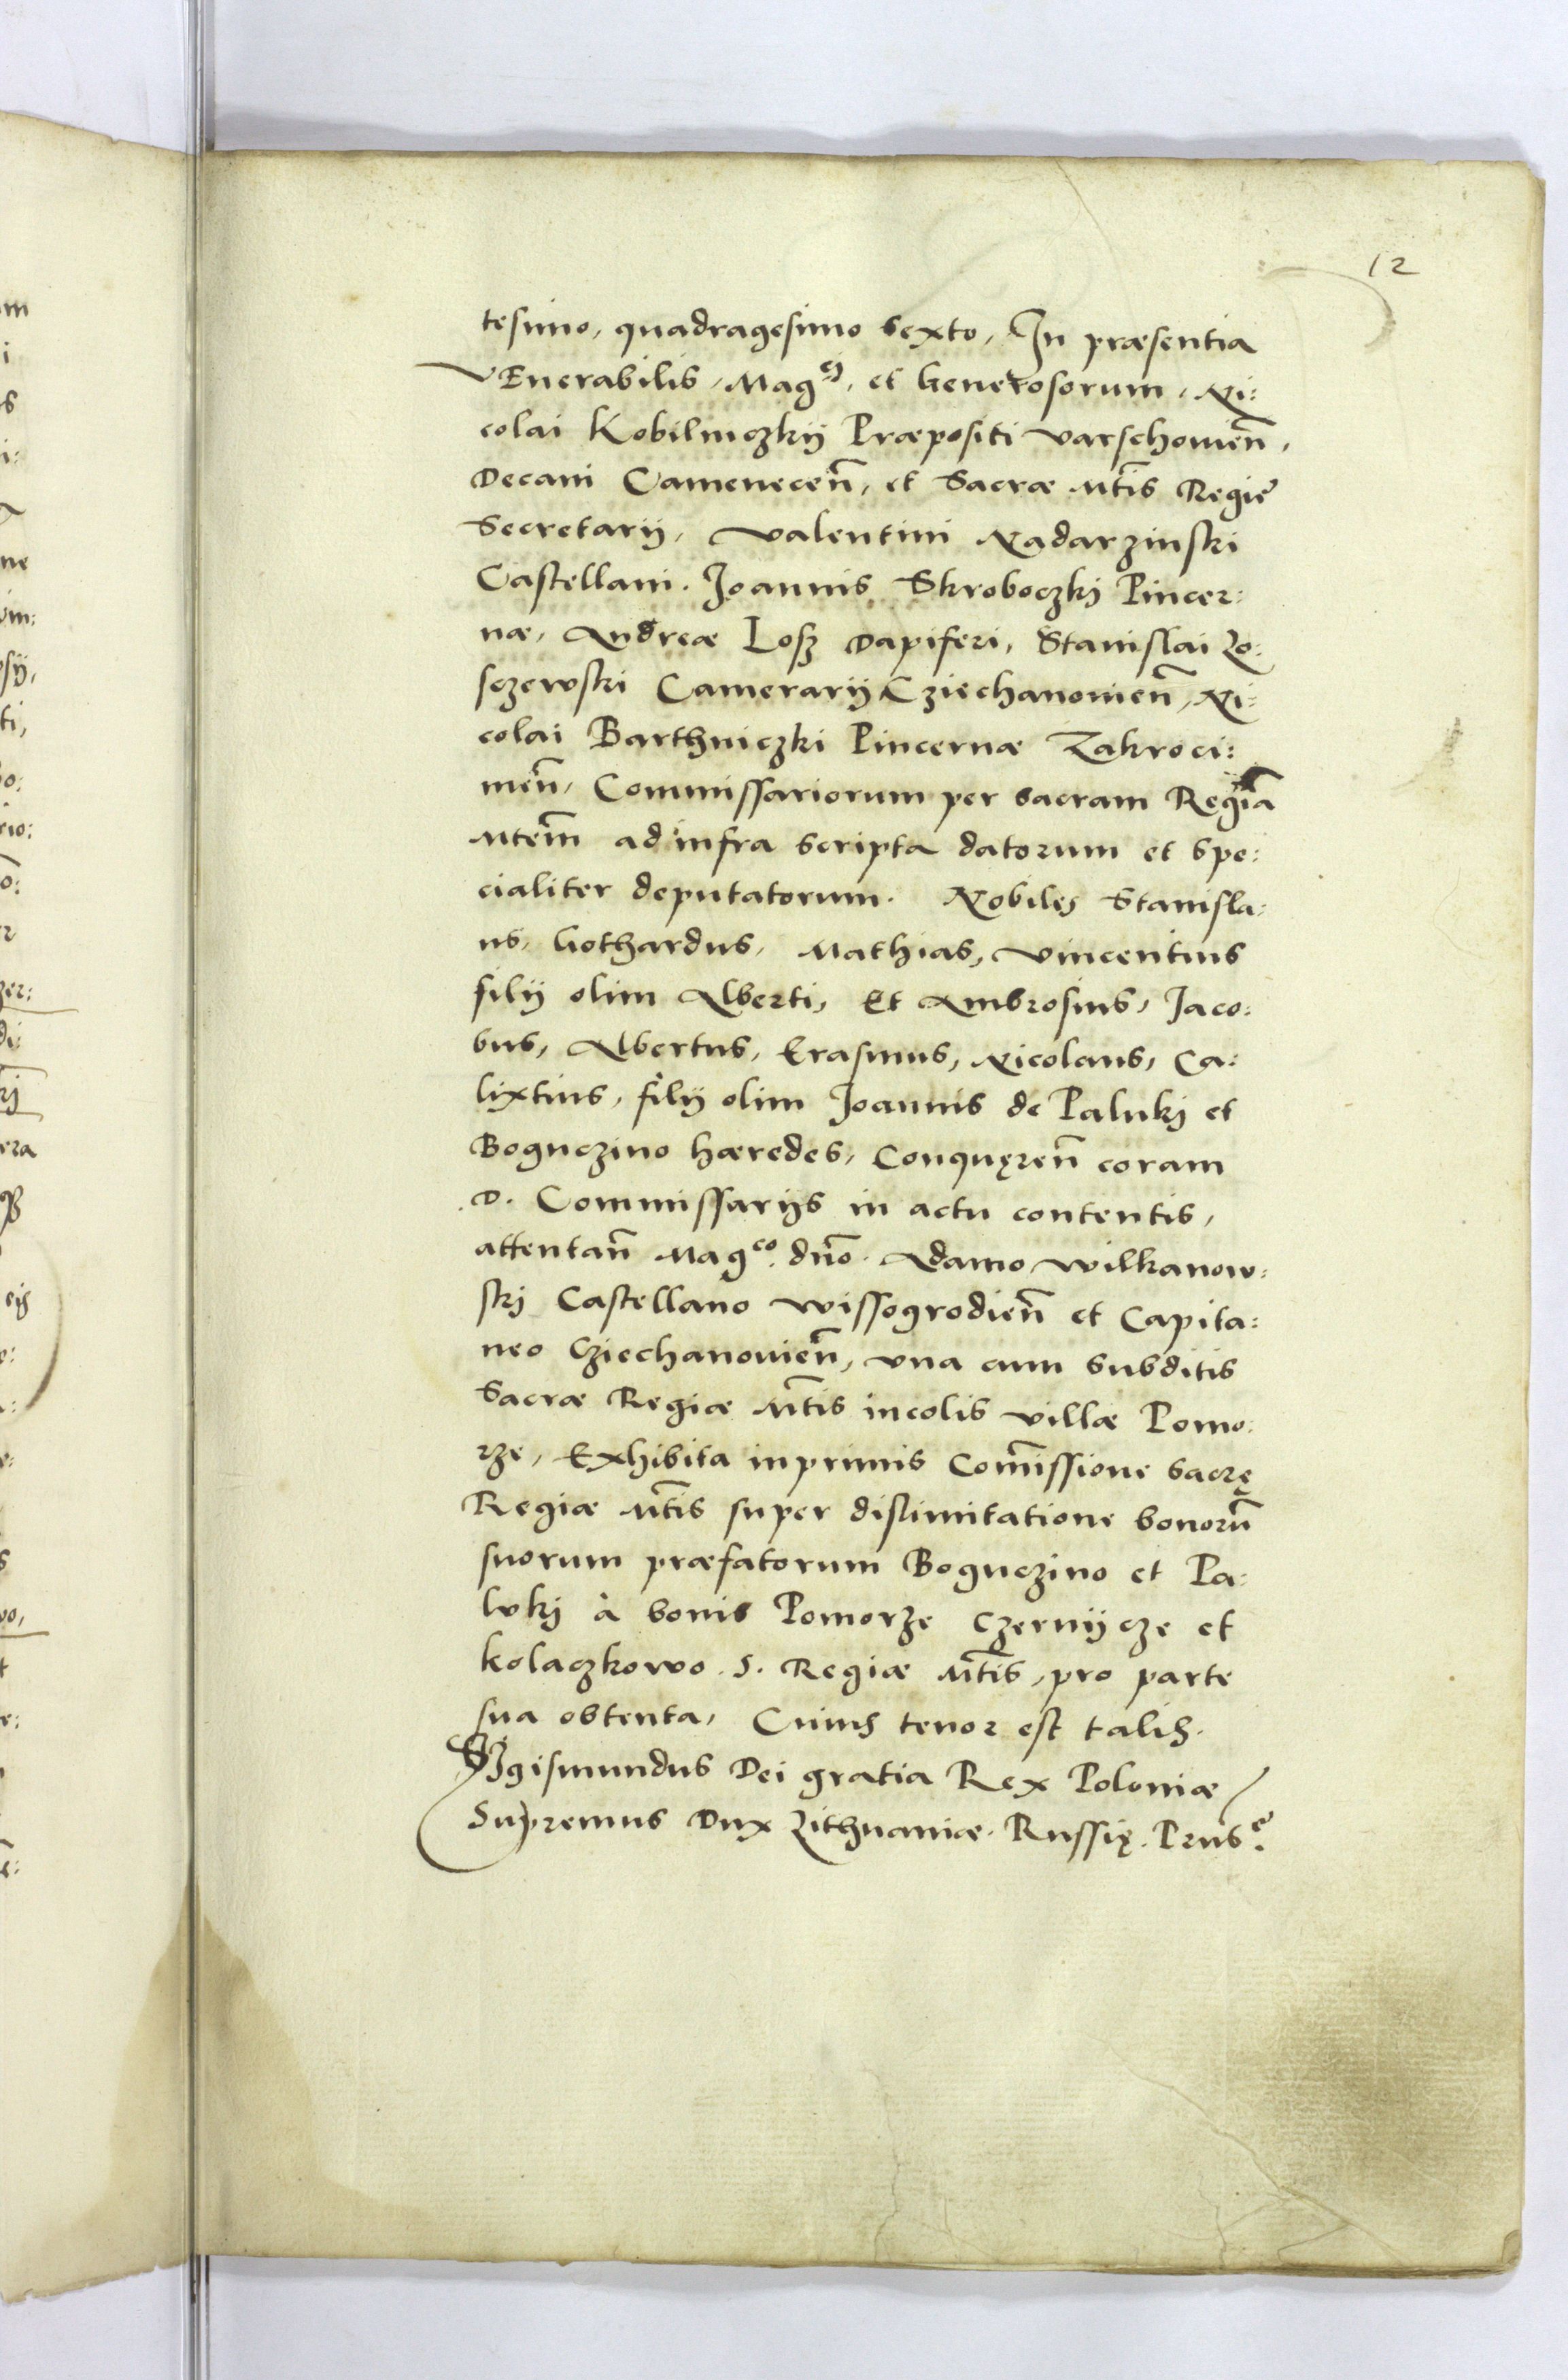 12
tesimo, quadragesimo sexto, In præsentia
VEnerabilis, Mag^ci, et Generosorum, Ni:
colai Kobilniczkij Præpositi Varschouien̄,
Decani Camenecen̄, et Sacræ M̄tis Regię
Secretarij, Valentini Nadarzinski
Castellani. Joannis Skroboczkj Pincer:
næ, Andreæ Losz Dapiferi, Stanislai Zo:
sczewski Camerarij Cziechanouien̄, Ni:
colai Barthniczki Pincernæ Zakroci:
mien̄, Commissariorum per sacram Regiā
Mtem̄ ad infra scripta datorum et spe:
cialiter deputatorum. Nobiles Stanisla:
us, Gothardus, Mathias, Vincentius
filij olim Alberti, Et Ambrosius, Jaco:
bus, Albertus, Erasmus, Nicolaus, Ca:
lixtius, filij olim Joannis de Palukj et
Boguczino hæredes, Conquęren̄ coram
D. Commissarijs in actu contentis,
attentan̄ Mag^co. dn̄o. Adamo Wilkanow:
skj Castellano Wissogrodien̄ et Capita:
neo Cziechanouien̄, vna cum subditis
Sacræ Regiæ M̄tis incolis villæ Pomo:
rze, Exhibita inprimis Com̄issione sacrę
Regiæ M̄tis super dislimitatione bonorū
suorum præfatorum Boguczino et Pa:
lukj à bonis Pomorze Czernijcze et
Kolaczkowo. S. Regiæ M̄tis, pro parte
sua obtenta, Cuius tenor est talis.
SIgismundus Dei gratia Rex Poloniæ
Supremus Dux Lithuaniæ. Russię. Prus^e.